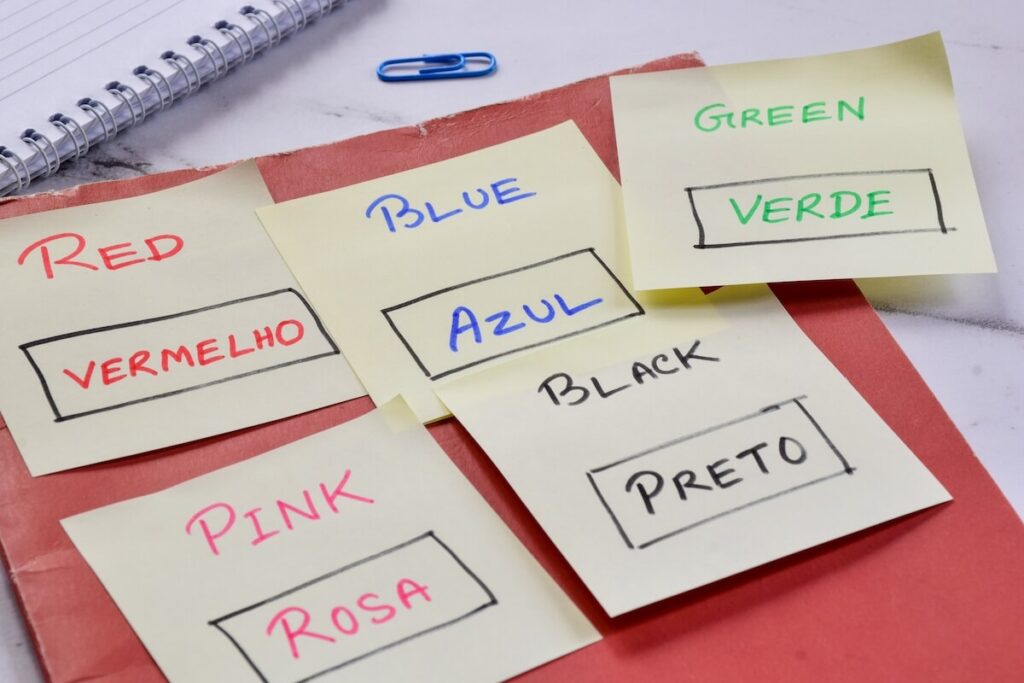 RED
VERMELHO
BLUE
AZUL
GREEN
VERDE
BLACK
PRETO
PINK
ROSA